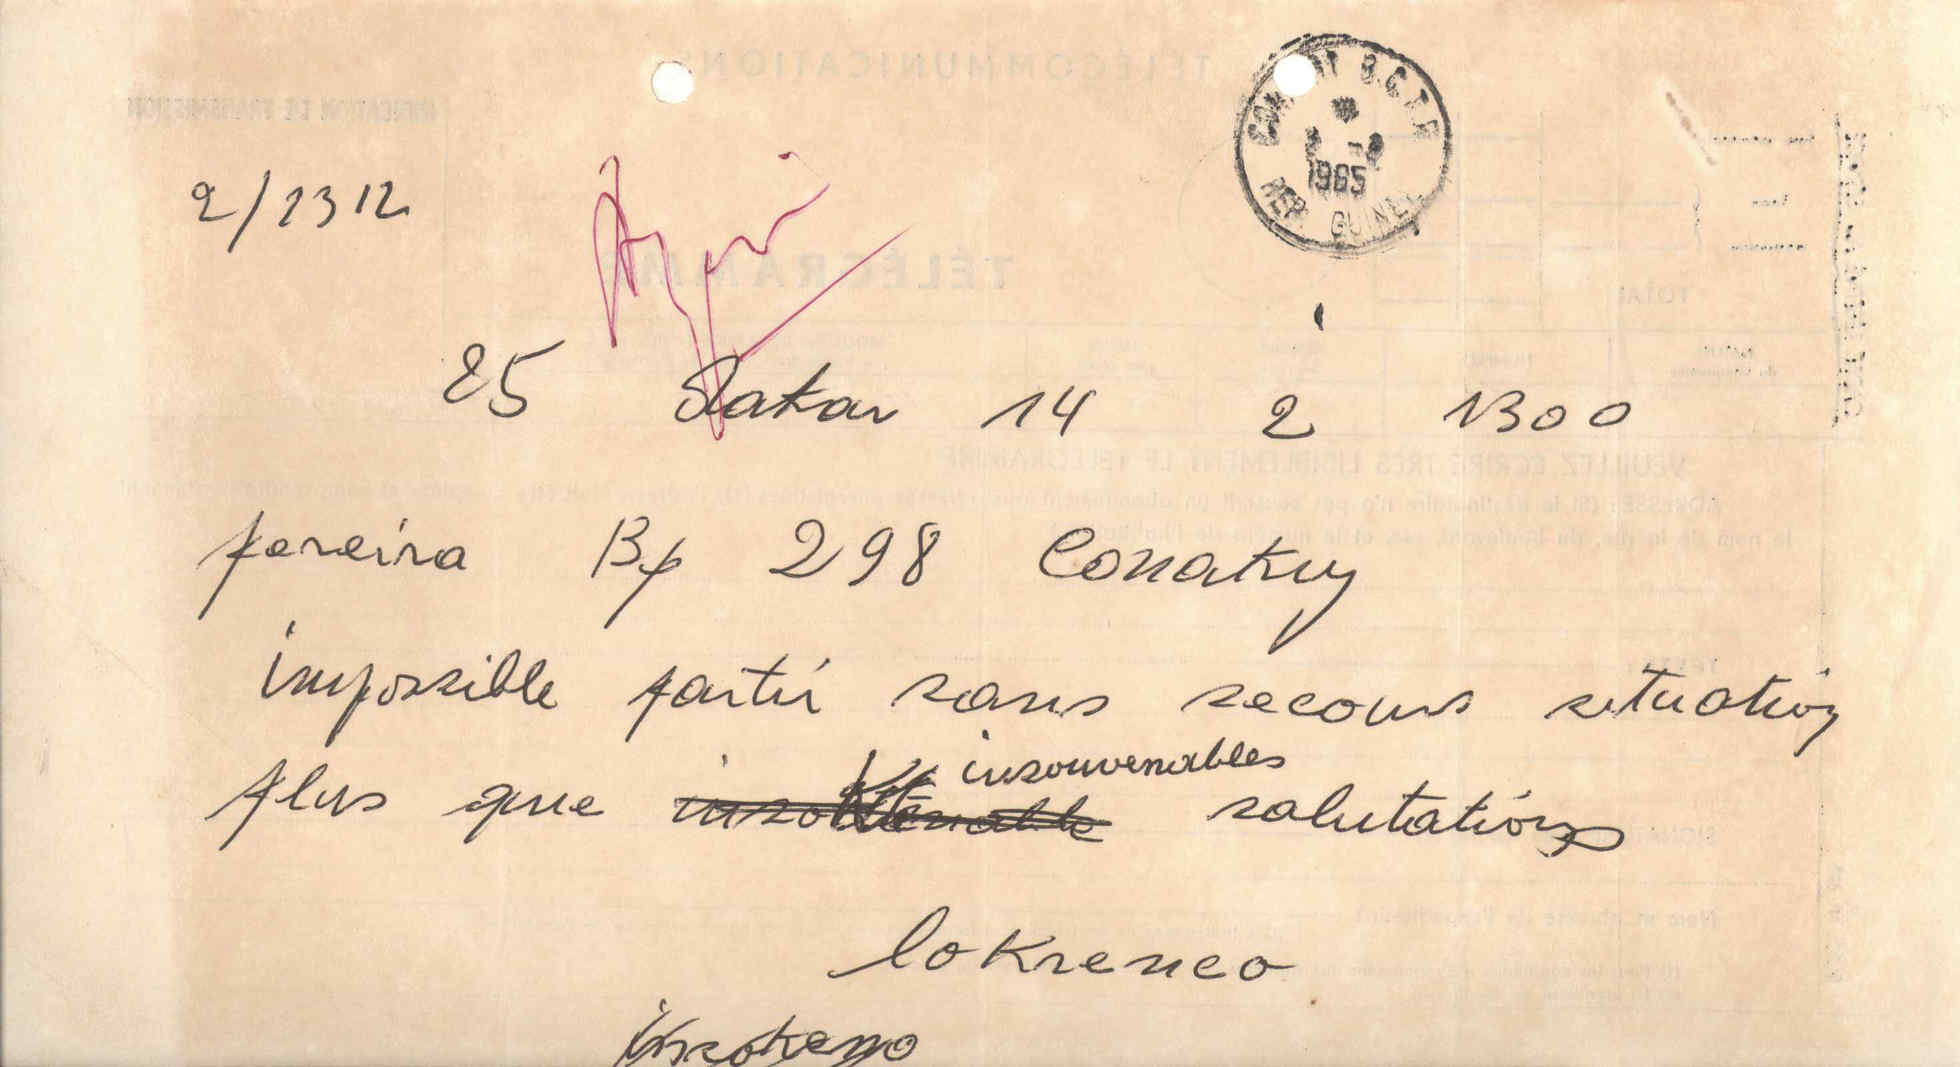 B.C.T.R
1965
REP GUINEE
2/1312
25 Dakar 14 2 1300
pereira Bp 298 Conakry
impossible partir sans secours situation
plus que insouvenables salutations
lokrenco